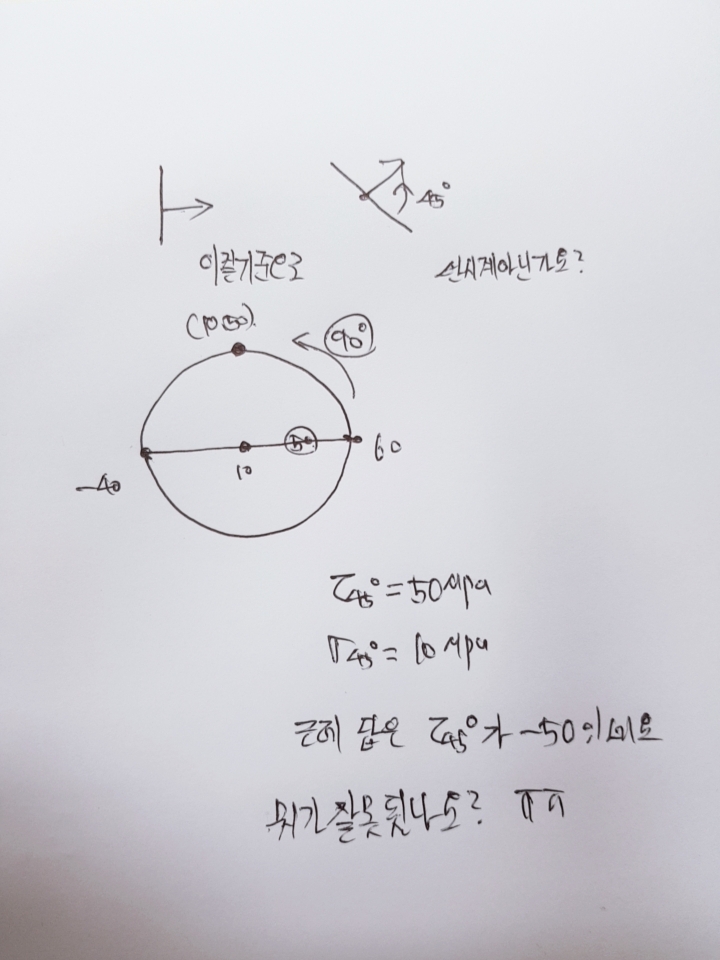 45°
이쯤기준으로
선시계아닌가요?
(10 50).
90°
50
60
10
-40
τ45°=50Mpa
σ45°=10Mpa
근데 답은 τ45°가 -50이네요
뭐가 잘못됫나요? ㅠㅠ